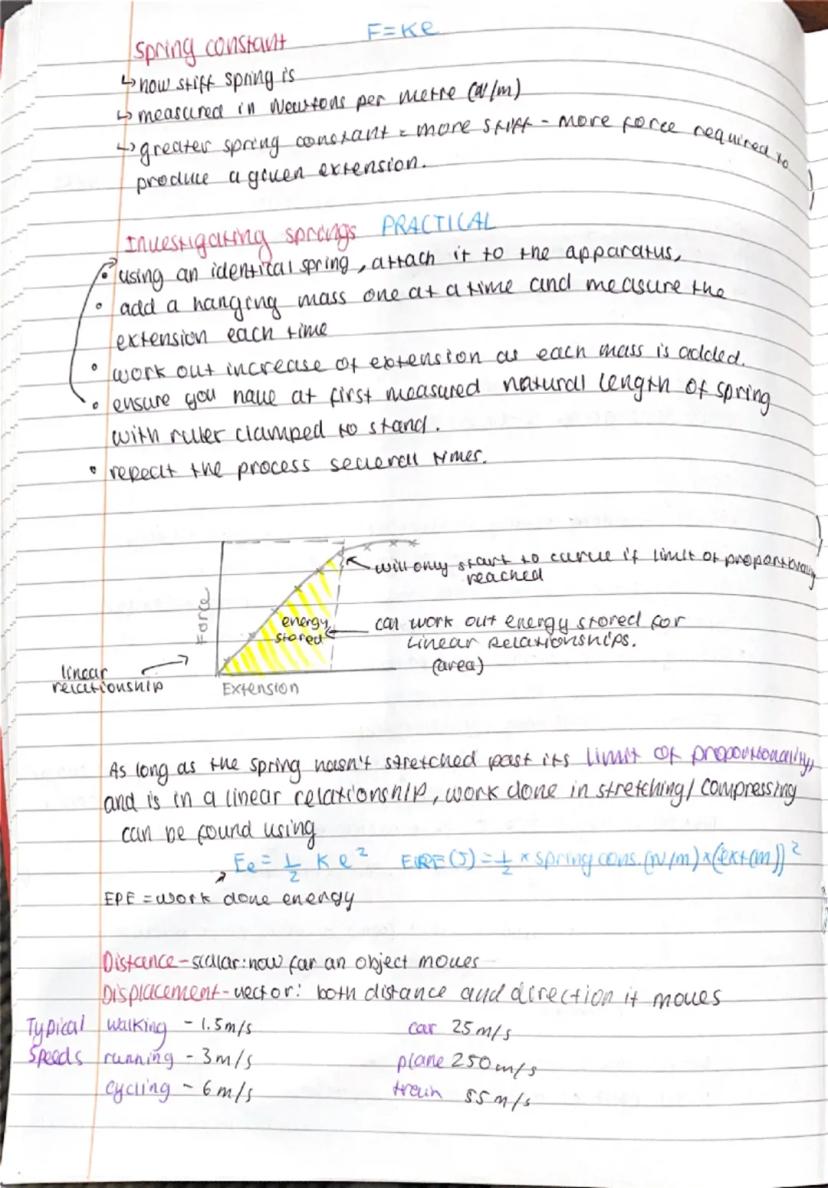 F=Ke
Spring constant
↳ how stiff spring is
↳ measured in Newtons per metre (N/m)
↳ greater spring constant = more stiff - more force required to
produce a given extension.
Investigating springs PRACTICAL
• using an identical spring, attach it to the apparatus,
• add a hanging mass one at a time and measure the
extension each time
• work out increase of extension as each mass is added.
• ensure you have at first measured natural length of spring
with ruler clamped to stand.
• repeat the process several times.
will only start to curve if limit of proportionality
reached
Force
energy
stored
can work out energy stored for
linear relationships.
(area)
linear
relationship
Extension
As long as the spring hasn't stretched past its limit of proportionality,
and is in a linear relationship, work done in stretching/compressing
can be found using
Ee = 1/2 K e² EPE (J) = 1/2 × spring cons. (N/m) × (ext(m))²
EPE = work done energy
Distance - scalar: how far an object moves
Displacement - vector: both distance and direction it moves
Typical walking - 1.5m/s car 25 m/s
Speeds running - 3m/s plane 250 m/s
cycling - 6m/s train 55 m/s